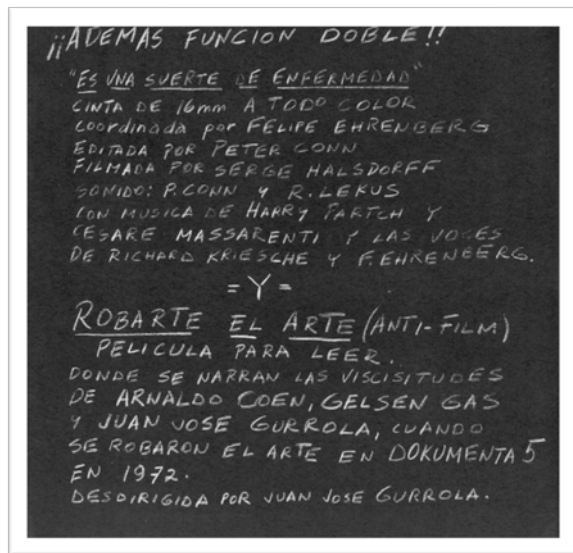 ¡¡ADEMAS FUNCION DOBLE!!
"ES UNA SUERTE DE ENFERMEDAD"
CINTA DE 16mm A TODO COLOR
coordinada por FELIPE EHRENBERG
EDITADA POR PETER CONN
FILMADA POR SERGE HALSDORFF
SONIDO: P. CONN Y R. LEKUS
CON MUSICA DE HARRY PARTCH Y
CESARE MASSARENTI Y LAS VOCES
DE RICHARD KRIESCHE Y F. EHRENBERG.
= Y =
ROBARTE EL ARTE (ANTI-FILM)
PELICULA PARA LEER.
DONDE SE NARRAN LAS VISCISITUDES
DE ARNALDO COEN, GELSEN GAS
Y JUAN JOSE GURROLA, CUANDO
SE ROBARON EL ARTE EN DOKUMENTA 5
EN 1972.
DESDIRIGIDA POR JUAN JOSE GURROLA.